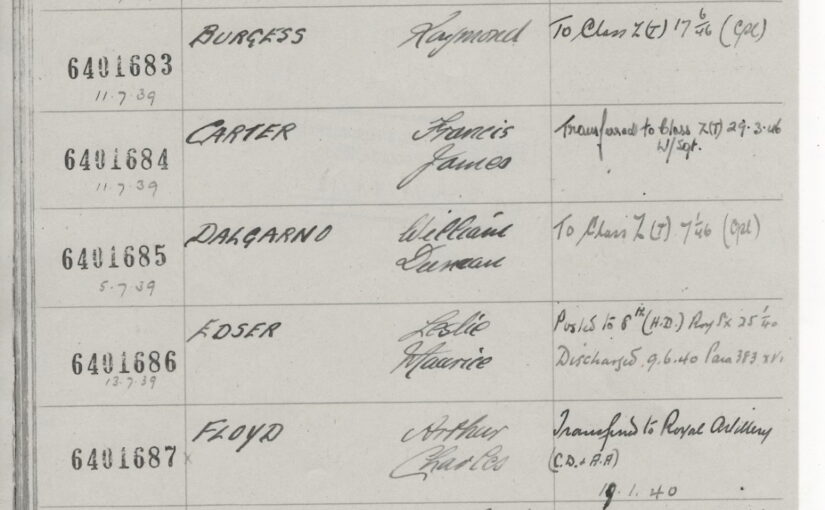 BURGESS Raymond To Class Z(T) 17 6/46 (Cpl)
6401683
11.7.39
CARTER Francis Transferred to Class Z(T) 29.3.46
6401684 James W/Sgt.
11.7.39
DALGARNO William To Class Z(T) 7 1/46 (Cpl)
6401685 Duncan
5.7.39
EDSER Leslie Posted to 6th (H.D.) Roy Sx 25 1/40
6401686 Maurice Discharged 9.6.40 Para 383 xvi
13.7.39
FLOYD Arthur Transferred to Royal Artillery
6401687 x Charles (C.D. + A.A)
19.1.40